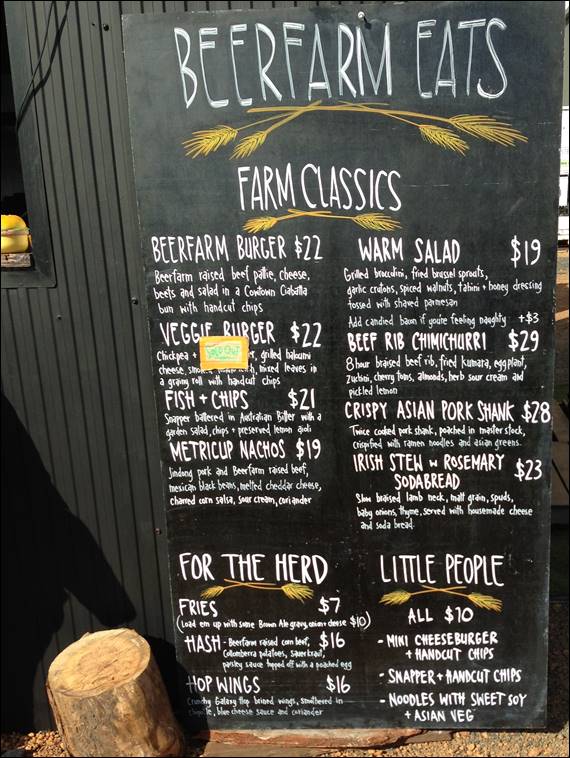 BEERFARM EATS
FARM CLASSICS
BEERFARM BURGER $22
Beerfarm raised beef pattie, cheese,
beets and salad in a Cowtown Ciabatta
bun with handcut chips
VEGGIE BURGER $22
SOLD OUT
Chickpea + grilled haloumi
cheese, mixed leaves in
a grainy roll with handcut chips
FISH + CHIPS $21
Snapper battered in Australian Bitter with a
garden salad, chips + preserved lemon aioli
METRICUP NACHOS $19
Jindong pork and Beerfarm raised beef,
mexican black beans, melted cheddar cheese,
charred corn salsa, sour cream, coriander
WARM SALAD $19
Grilled broccolini, fried brussel sprouts,
garlic crutons, spiced walnuts, tahini + honey dressing
tossed with shaved parmesan
Add candied bacon if you're feeling naughty +$3
BEEF RIB CHIMICHURRI $29
8 hour braised beef rib, fried kumara, eggplant,
zuchini, cherry toms, almonds, herb sour cream and
pickled lemon
CRISPY ASIAN PORK SHANK $28
Twice cooked pork shank, poached in master stock,
crispified with ramen noodles and asian greens.
IRISH STEW W ROSEMARY
SODABREAD $23
Slow braised lamb neck, malt grain, spuds,
baby onions, thyme, served with housemade cheese
and soda bread
FOR THE HERD
FRIES $7
(Load em up with some Brown Ale gravy, onion + cheese $10)
HASH - Beerfarm raised corn beef, $16
potatoes, sauerkraut,
parsley sauce topped off with a poached egg
HOP WINGS $16
Crunchy Galaxy Hop brined wings, smothered in
blue cheese sauce and coriander
LITTLE PEOPLE
ALL $10
- MINI CHEESEBURGER
+ HANDCUT CHIPS
- SNAPPER + HANDCUT CHIPS
- NOODLES WITH SWEET SOY
+ ASIAN VEG